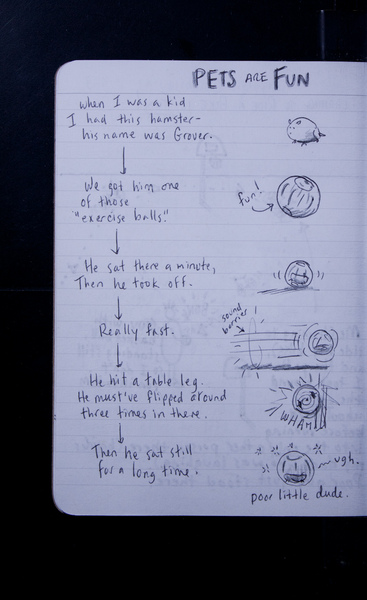 PETS ARE FUN
when I was a kid
I had this hamster-
his name was Grover.
We got him one
of those
"exercise balls."
fun!
He sat there a minute,
Then he took off.
sound
barrier
Really fast.
He hit a table leg.
He must've flipped around
three times in there.
WHAM!
Then he sat still
for a long time.
ugh.
poor little dude.